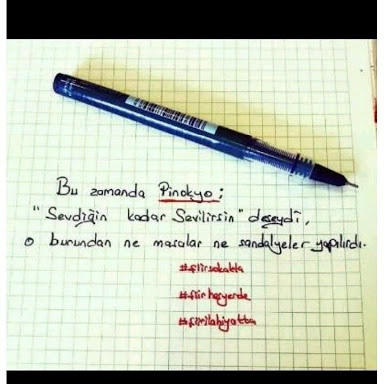 Bu zamanda Pinokyo;
"Sevdiğin kadar Sevilirsin" deseydi,
o burundan ne masalar ne sandalyeler yapılırdı.
#şiirsokakta
#şiirheryerde